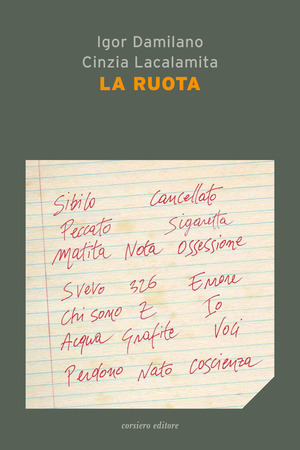 Igor Damilano
Cinzia Lacalamita
LA RUOTA
Sibilo Cancellato
Peccato Sigaretta
Matita Nota Ossessione
Svevo 326 Errore
Chi sono E Io
Acqua Grafite Voci
Perdono Nato Coscienza
corsiero editore